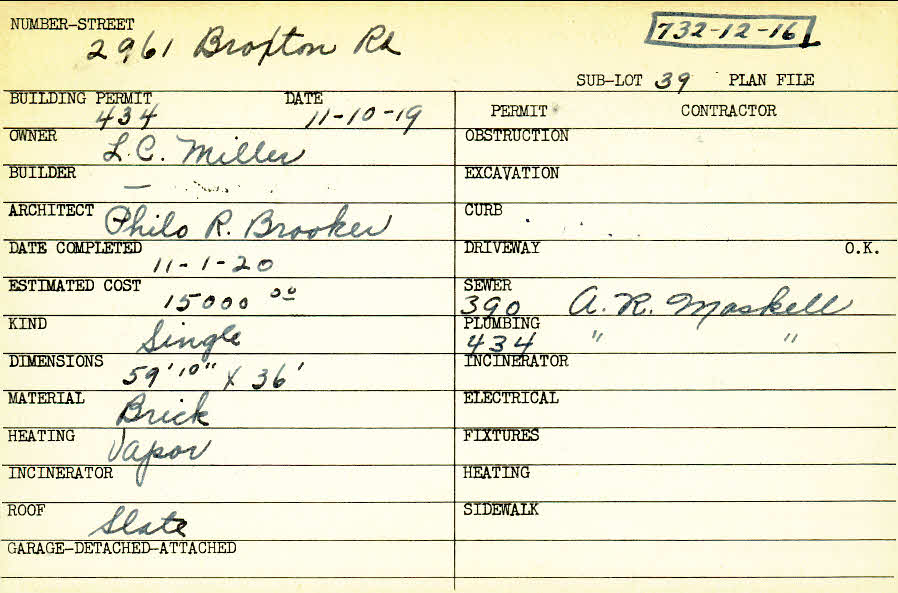 NUMBER-STREET
2961 Broxton Rd
732-12-16
SUB-LOT 39 PLAN FILE
BUILDING PERMIT DATE
434 11-10-19
PERMIT CONTRACTOR
OWNER
L.C. Miller
OBSTRUCTION
BUILDER
—
EXCAVATION
ARCHITECT
Philo R. Brooker
CURB
DATE COMPLETED
11-1-20
DRIVEWAY O.K.
ESTIMATED COST
15000 00
SEWER
390 A. R. Maskell
KIND
Single
PLUMBING
434 " "
DIMENSIONS
59'10" X 36'
INCINERATOR
MATERIAL
Brick
ELECTRICAL
HEATING
Vapor
FIXTURES
INCINERATOR
HEATING
ROOF
Slate
SIDEWALK
GARAGE-DETACHED-ATTACHED